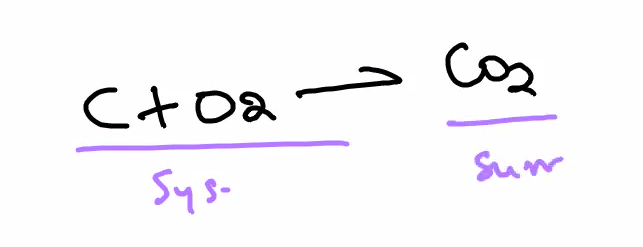 C + O2 → CO2
Sys. Surr